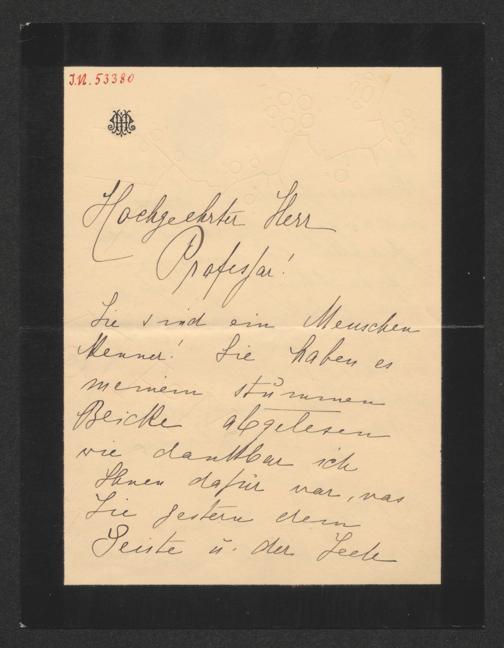 I.N. 53380
Hochgeehrter Herr
Professor!
Sie sind ein Menschen
Kenner! Sie haben es
meinem stummen
Blicke abgelesen
wie dankbar ich
Ihnen dafür war, was
Sie gestern dem
Geiste u. der Seele